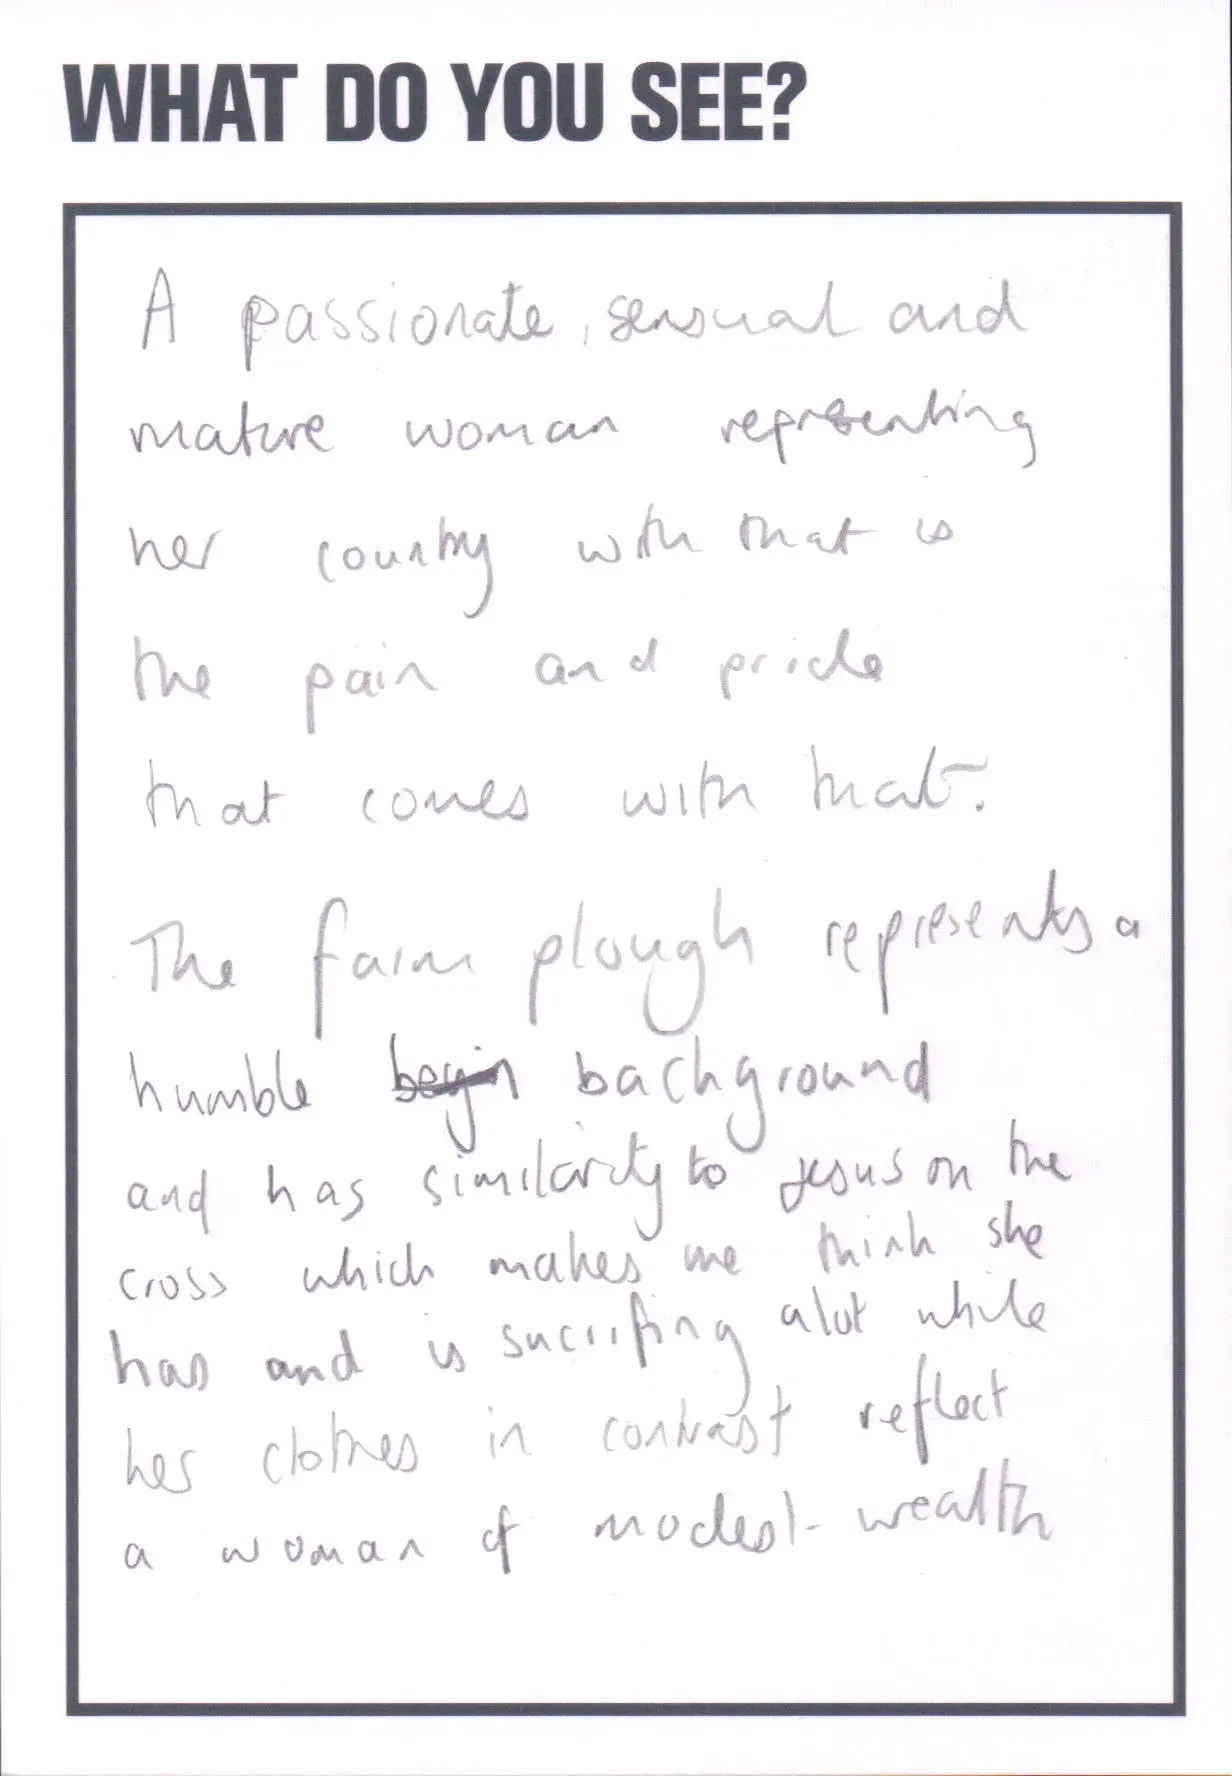 WHAT DO YOU SEE?
A passionate, sensual and
mature woman representing
her country with that is
the pain and pride
that comes with that.
The farm plough represents a
humble begin background
and has similarity to Jesus on the
cross which makes me think she
has and is sucrifing alot while
her clothes in contrast reflect
a woman of modest wealth